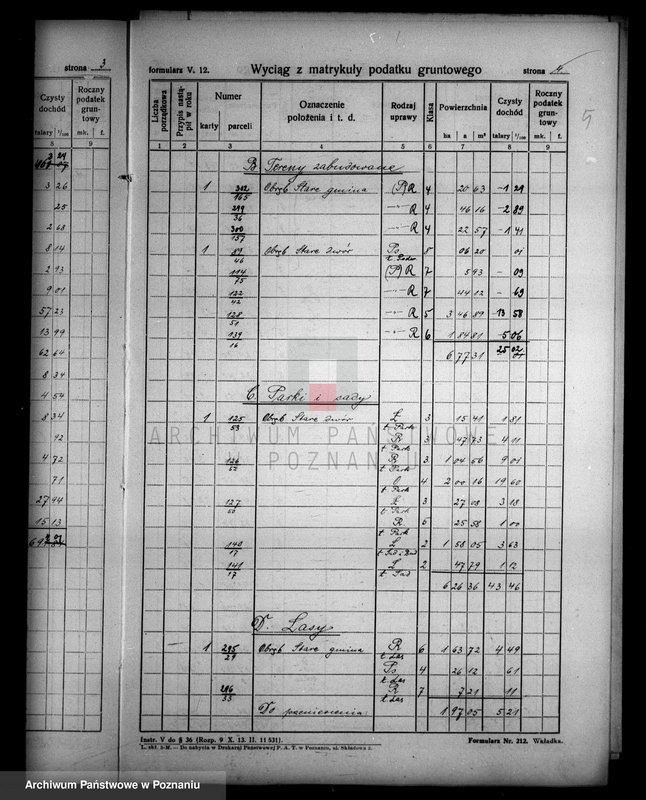 strona 3
Czysty dochód
Roczny podatek gruntowy
talary ¹/₁₀₀ mk. f.
8 9
3 26
25
2 68
8 14
2 93
9 01
57 23
13 99
62 64
8 34
4 54
8 34
92
4 72
71
27 94
15 13
formularz V. 12. Wyciąg z matrykuły podatku gruntowego strona 4
5
Liczba porządkowa
Przypis nastąpił w roku
Numer
karty parceli
Oznaczenie położenia i t. d.
Rodzaj uprawy
Klasa
Powierzchnia
ha a m²
Czysty dochód
talary ¹/₁₀₀
Roczny podatek gruntowy
mk. f.
1 2 3 4 5 6 7 8 9
B. Tereny zabudowane
1 312/165 Obręb Stare gmina (P) R 4 20 63 1 29
299/36 " R 4 46 16 2 89
300/157 " R 4 22 57 1 41
1 89/46 Obręb Stare dwór Ps 5 06 20 01
114/75 (P) R 7 5 93 09
122/42 " R 7 44 12 69
128/51 " R 5 3 46 89 13 58
139/16 " R 6 1 84 81 5 06
6 77 31 25 02
C. Parki i sady
1 125/53 Obręb Stare dwór Ł 3 15 41 1 81
t. Park
R 3 47 73 4 11
t. Park
126/52 R 3 1 04 56 9 01
t. Park
4 2 00 16 19 60
t. Park
127/50 Ł 3 27 08 3 18
t. Park
R 5 25 58 1 00
t. Park
140/17 Ł 2 1 58 05 3 63
141/17 Ł 2 47 79 1 12
t. Sad
6 26 36 43 46
D. Lasy
1 295/29 Obręb Stare gmina R 6 1 63 72 4 49
t. Las
Ps 4 26 12 61
t. Las
296/35 R 7 7 21 11
t. Las
Do przeniesienia 1 97 05 5 21
Instr. V do § 36 (Rozp. 9 X. 13. II. 11 531).
L. skł. 3-M. — Do nabycia w Drukarni Państwowej P. A. T. w Poznaniu, ul. Składowa 2.
Formularz Nr. 212. Wkładka.
ARCHIWUM PAŃSTWOWE
W POZNANIU
Archiwum Państwowe w Poznaniu